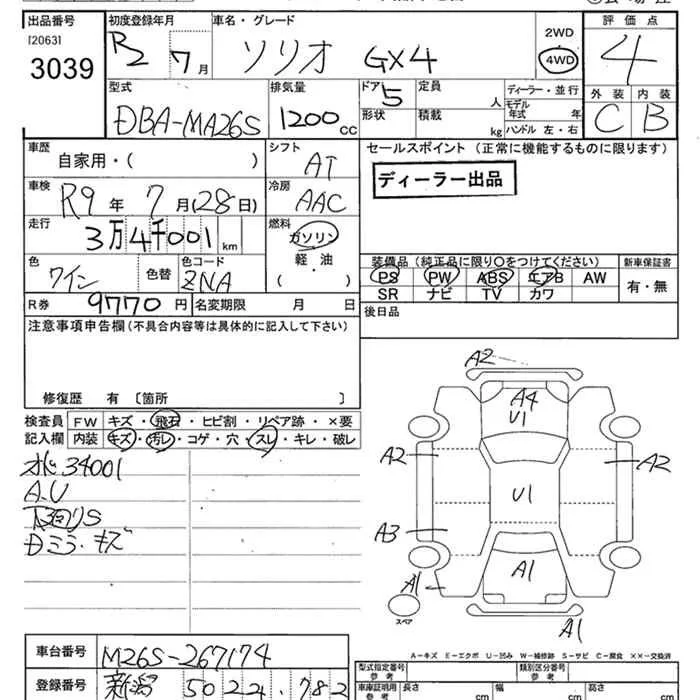 出品番号
[2063]
3039
初度登録年月
R2 7月
車名・グレード
ソリオ GX4
2WD
4WD
評価点
4
型式
DBA-MA26S
排気量
1200cc
ドア
5
形状
定員
人
積載
kg
ディーラー・並行
モデル年式 年
ハンドル 左・右
外装 内装
C B
車歴
自家用・( )
シフト
AT
セールスポイント (正常に機能するものに限ります)
ディーラー出品
車検
R9年 7月(28日)
冷房
AAC
走行
3万4千001km
燃料
ガソリン
軽油
・
( )
色
ワイン
色替
色コード
ZNA
装備品(純正品に限り○をつけてください)
PS PW ABS エアB AW
SR ナビ TV カワ
新車保証書
有・無
R券 9770円
名変期限 月 日
後日品
注意事項申告欄(不具合内容等は具体的に記入して下さい)
修復歴 有 〔箇所 〕
検査員記入欄
FW キズ・飛石・ヒビ割・リペア跡・×要
内装 キズ・汚レ・コゲ・穴・スレ・キレ・破レ
34001
A.U
下回りS
Dミラ・キズ
A2
A4
U1
A2
A2
U1
A3
A1
A1
A1
スペア
A-キズ E-エクボ U-凹み W-補修跡 S-サビ C-腐食 XX-交換済
車台番号
MA26S-267174
登録番号
新潟 502 す・782
型式指定番号
参考
類別区分番号
参考
車庫証明用
参考
長さ cm
幅 cm
高さ cm